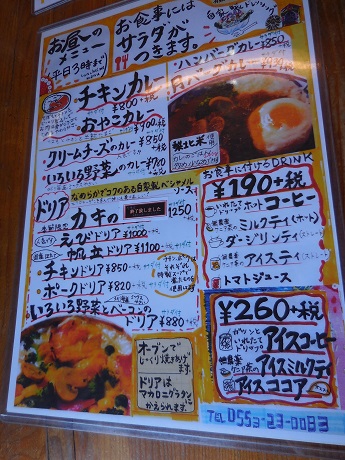 お昼のメニュー
平日3時まで
お食事には
サラダが
つきます。
ハンバーグカレー ¥850
チキンカレー
¥800+税
おやこカレー
¥900+税
クリームチーズのカレー ¥850
いろいろ野菜のカレー ¥900
+税
銀土と米
なめらかでコクのある自家製ベシャメル
ソース
ドリア
カキの
終了致しました
1250
えびドリア ¥1000
帆立ドリア ¥1100
チキンドリア ¥850
ポークドリア ¥820
いろいろ野菜とベーコンの
ドリア ¥880
+税
オーブンで
じっくり焼きあげ
ます。
ドリアは
マカロニグラタンに
かえられます。
お食事に付けるDRINK
¥190+税
ホットコーヒー
ミルクティ(ホット)
ダージリンティ(ストレート)
アイスティ(ストレート)
トマトジュース
¥260+税
アイスコーヒー
アイスミルクティ
アイスココア
TEL 0553-23-0083